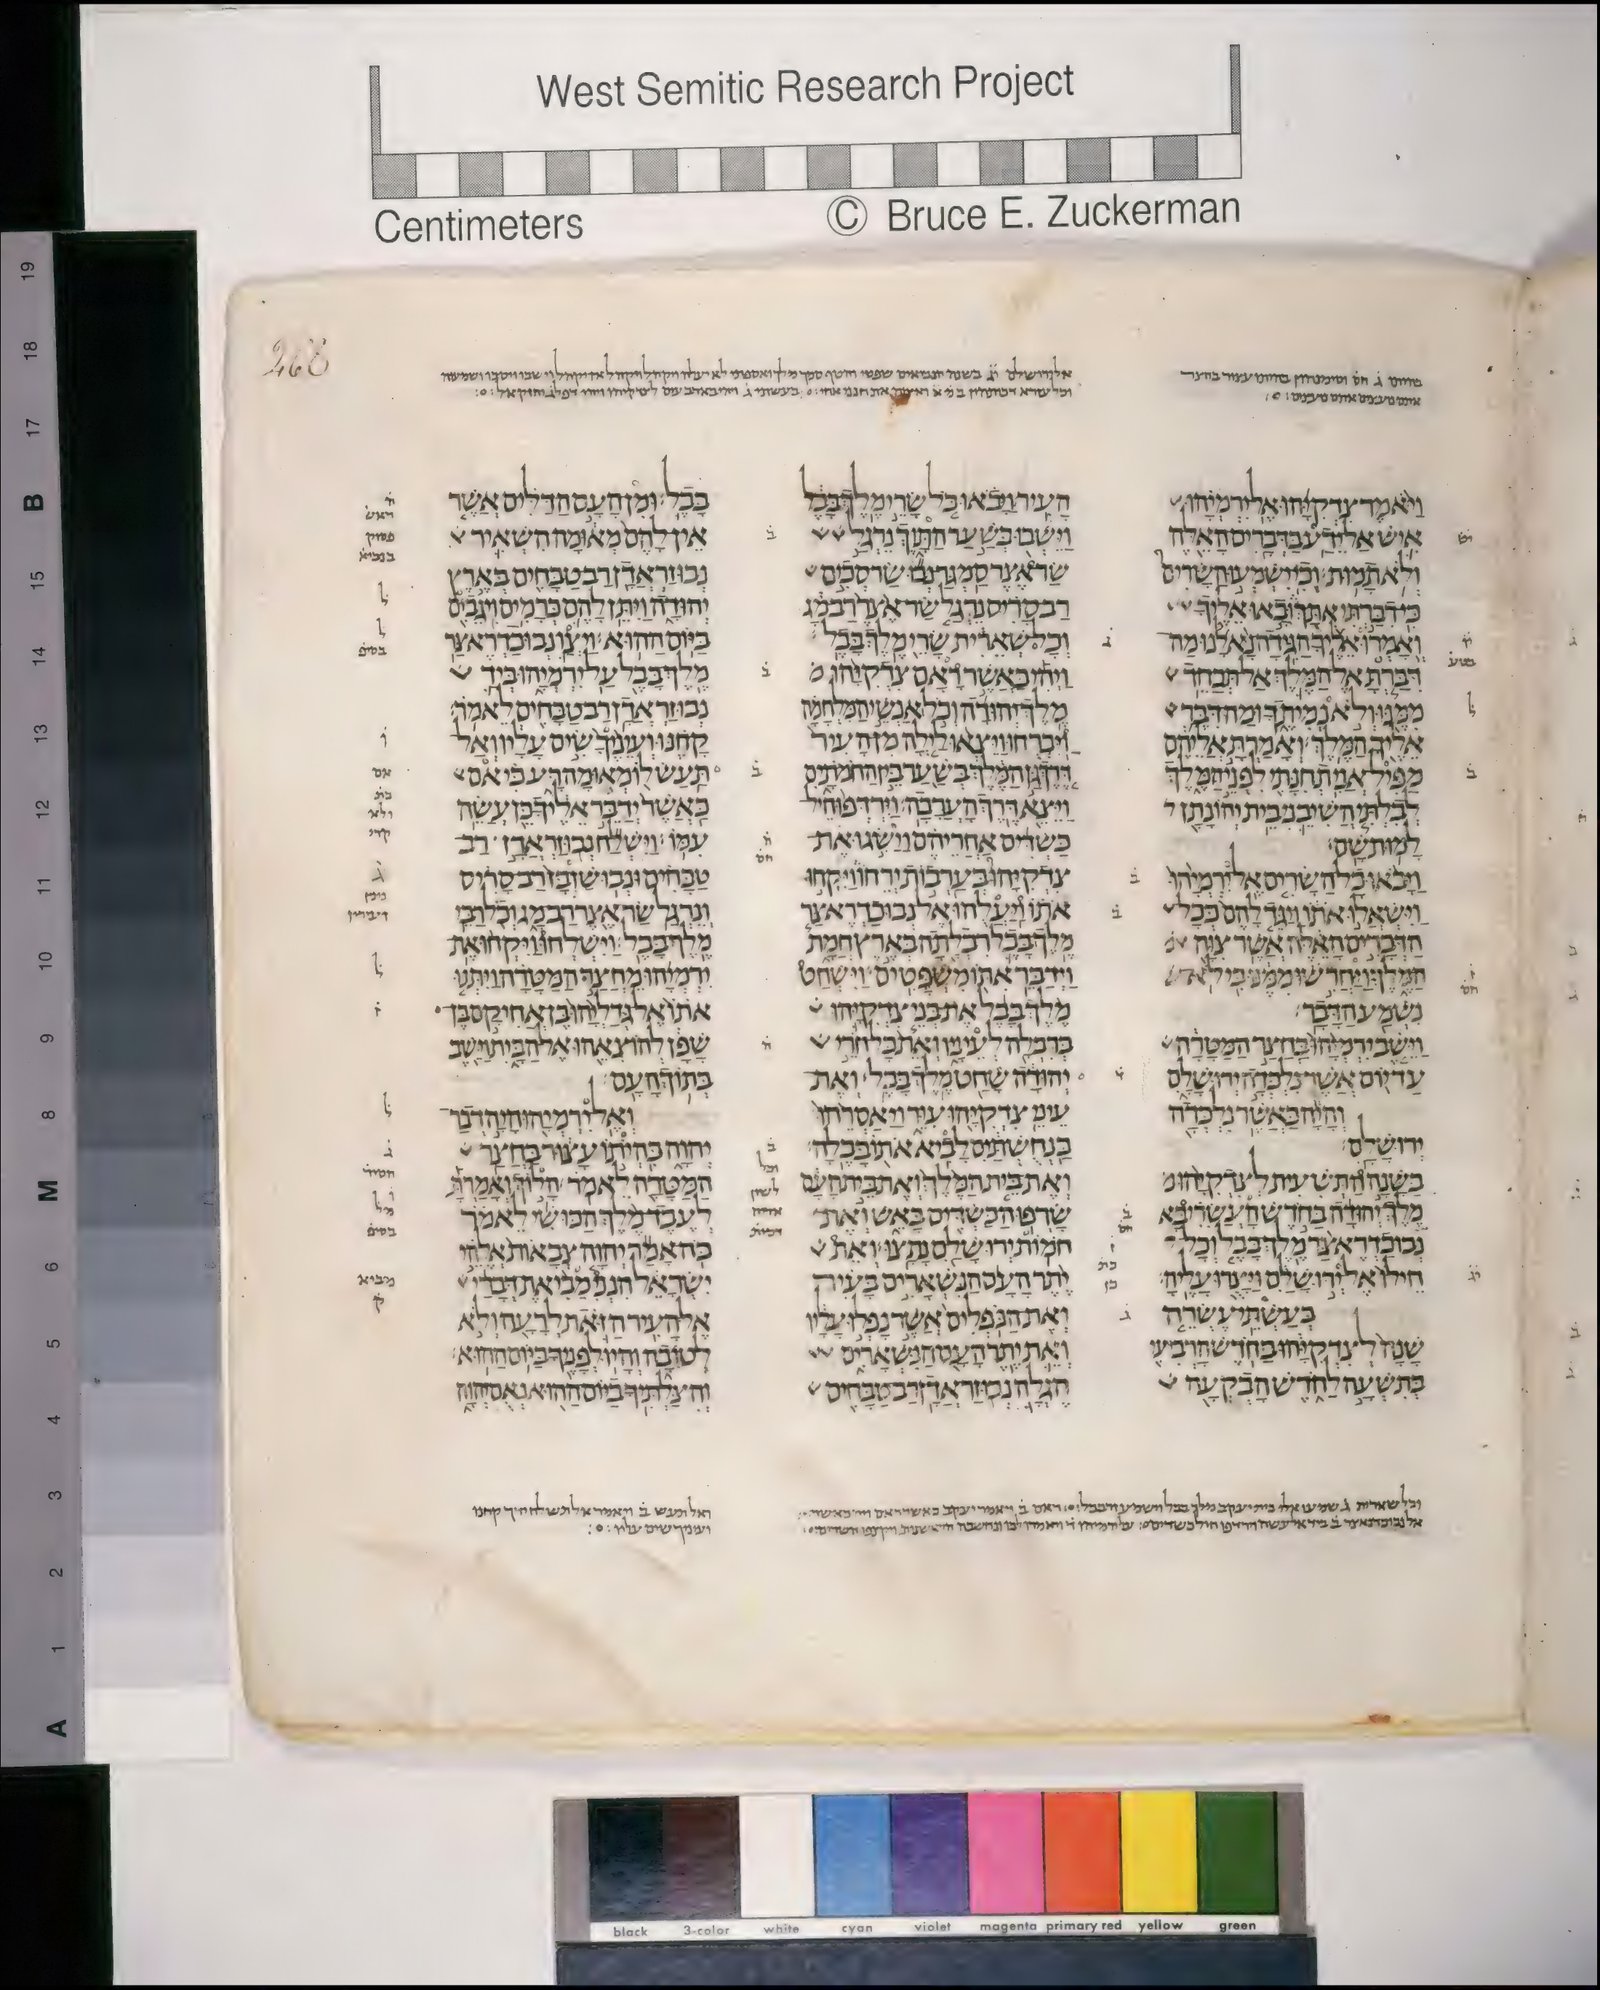 West Semitic Research Project
Centimeters
© Bruce E. Zuckerman
268
ויאמר צדקיהו אל ירמיהו
איש אל ידע בדברים האלה
ולא תמות׃ וכי ישמעו השרים
כי דברתי אתך ובאו אליך
ואמרו אליך הגידה נא לנו מה
דברת אל המלך אל תכחד
ממנו ולא נמיתך ומה דבר
אליך המלך׃ ואמרת אליהם
מפיל אני תחנתי לפני המלך
לבלתי השיבני בית יהונתן
למות שם׃
ויבאו כל השרים אל ירמיהו
וישאלו אתו ויגד להם ככל
הדברים האלה אשר צוה
המלך ויחרשו ממנו כי לא
נשמע הדבר׃
וישב ירמיהו בחצר המטרה
עד יום אשר נלכדה ירושלם
והיה כאשר נלכדה
ירושלם׃
בשנה התשעית לצדקיהו
מלך יהודה בחדש העשרי בא
נבוכדראצר מלך בבל וכל
חילו אל ירושלם ויצרו עליה׃
בעשתי עשרה
שנה לצדקיהו בחדש הרביעי
בתשעה לחדש הבקעה
העיר׃ ויבאו כל שרי מלך בבל
וישבו בשער התוך נרגל
שר אצר סמגר נבו שרסכים
רב סריס נרגל שר אצר רב מג
וכל שארית שרי מלך בבל׃
ויהי כאשר ראם צדקיהו
מלך יהודה וכל אנשי המלחמה
ויברחו ויצאו לילה מן העיר
דרך גן המלך בשער בין החמתים
ויצא דרך הערבה׃ וירדפו חיל
כשדים אחריהם וישגו את
צדקיהו בערבות ירחו ויקחו
אתו ויעלהו אל נבוכדראצר
מלך בבל רבלתה בארץ חמת
וידבר אתו משפטים׃ וישחט
מלך בבל את בני צדקיהו
ברבלה לעיניו ואת כל חרי
יהודה שחט מלך בבל׃ ואת
עיני צדקיהו עור ויאסרהו
בנחשתים לביא אתו בבלה׃
ואת בית המלך ואת בית העם
שרפו הכשדים באש ואת
חמות ירושלם נתצו׃ ואת
יתר העם הנשארים בעיר
ואת הנפלים אשר נפלו עליו
ואת יתר העם הנשארים
הגלה נבוזראדן רב טבחים
בבל׃ ומן העם הדלים אשר
אין להם מאומה השאיר
נבוזראדן רב טבחים בארץ
יהודה ויתן להם כרמים ויגבים
ביום ההוא׃ ויצו נבוכדראצר
מלך בבל על ירמיהו ביד
נבוזראדן רב טבחים לאמר׃
קחנו ועיניך שים עליו ואל
תעש לו מאומה רע כי אם
כאשר ידבר אליך כן עשה
עמו׃ וישלח נבוזראדן רב
טבחים ונבושזבן רב סריס
ונרגל שר אצר רב מג וכל רבי
מלך בבל׃ וישלחו ויקחו את
ירמיהו מחצר המטרה ויתנו
אתו אל גדליהו בן אחיקם בן
שפן להוצאהו אל הבית וישב
בתוך העם׃
ואל ירמיהו היה דבר
יהוה בהיתו עצור בחצר
המטרה לאמר׃ הלוך ואמרת
לעבד מלך הכושי לאמר
כה אמר יהוה צבאות אלהי
ישראל הנני מבי את דברי
אל העיר הזאת לרעה ולא
לטובה והיו לפניך ביום ההוא׃
והצלתיך ביום ההוא נאם יהוה
19
18
17
B
16
15
14
13
12
11
10
9
8
M
7
6
5
4
3
2
1
A
black 3-color white cyan violet magenta primary red yellow green